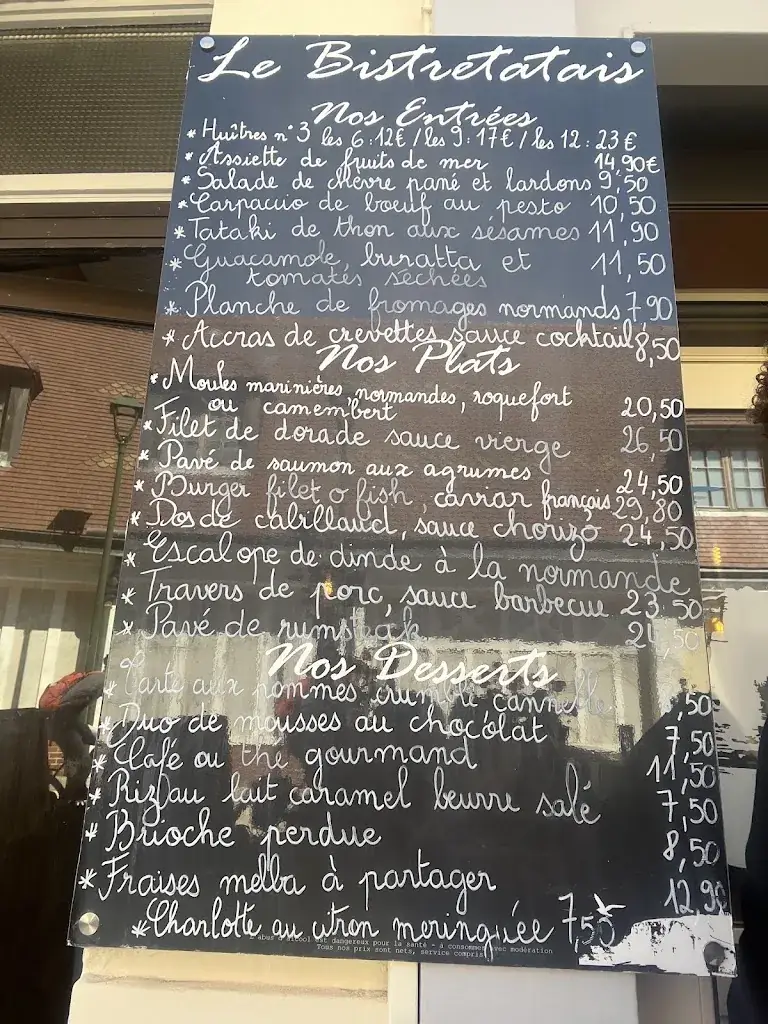 Le Bistretatais
Nos Entrées
* Huîtres n°3 les 6:12€ / les 9:17€ / les 12:23€
* Assiette de fruits de mer 14,90€
* Salade de chèvre pané et lardons 9,50
* Carpaccio de boeuf au pesto 10,50
* Tataki de thon aux sésames 11,90
* Guacamole, buratta et 11,50
tomates séchées
* Planche de fromages normands 7,90
* Accras de crevettes sauce cocktail 8,50
Nos Plats
* Moules marinières, normandes, roquefort
ou camembert 20,50
* Filet de dorade sauce vierge 26,50
* Pavé de saumon aux agrumes 24,50
* Burger filet o fish, caviar français 29,80
* Dos de cabillaud, sauce chorizo 24,50
* Escalope de dinde à la normande
* Travers de porc, sauce barbecue 23,50
* Pavé de rumsteak 24,50
Nos Desserts
* Tarte aux pommes crumble cannelle ,50
* Duo de mousses au chocolat 7,50
* Café ou thé gourmand 11,50
* Riz au lait caramel beurre salé 7,50
* Brioche perdue 8,50
* Fraises melba à partager 12,90
* Charlotte au citron meringuée 7,50
L'abus d'alcool est dangereux pour la santé - à consommer avec modération
Tous nos prix sont nets, service compris